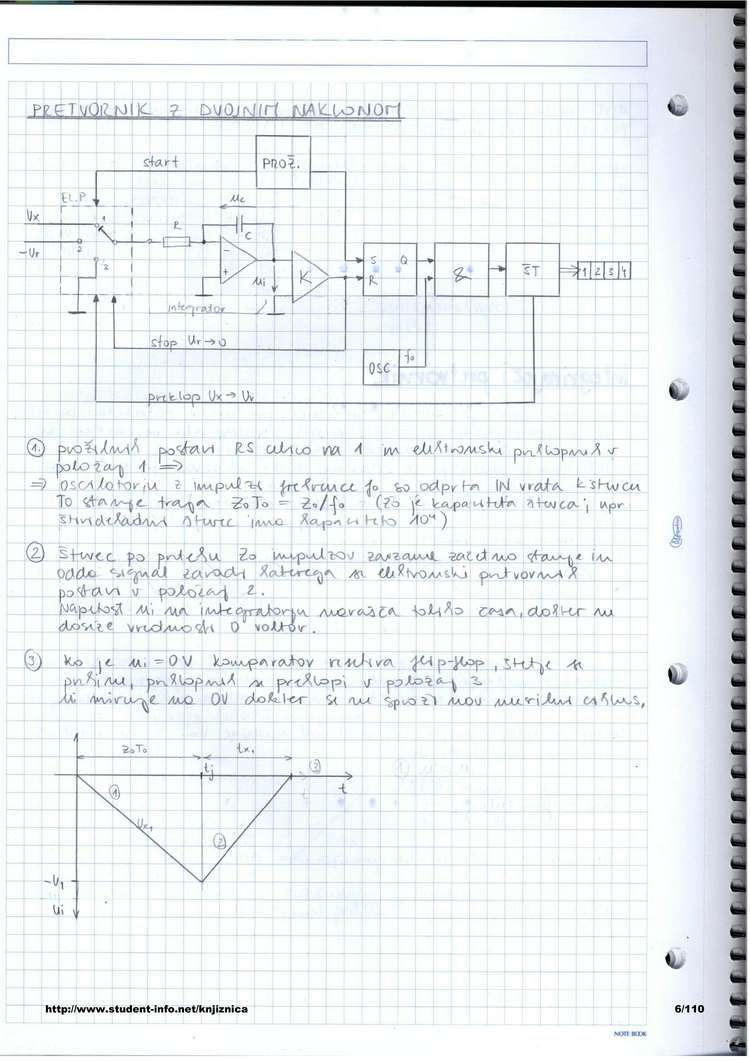 PRETVORNIK Z DVOJNIM NAKLONOM
start
PROŽ.
EL.P
Ux
1
-Ur
2
3
R
uc
C
-
+
ui
K
integrator
S Q
R
&
ŠT
1 2 3 4
OSC
fo
stop Ur → 0
preklop Ux → Ur
1. prožilnik postavi RS celico na 1 in elektronski preklopnik v
položaj 1 ⇒
⇒ oscilatorju z impulzi frekvence fo so odprta IN vrata k števcu
To stanje traja ZoTo = Zo/fo (Zo je kapaciteta števca; npr
štiridekadni števec ima kapaciteto 10⁴)
2 Števec po preteku Zo impulzov zavzame začetno stanje in
odda signal zaradi katerega se elektronski pretvornik
postavi v položaj 2.
Napetost ui na integratorju narašča toliko časa, dokler ne
doseže vrednosti 0 voltov.
3 Ko je ui = 0V komparator resetira flip-flop, štetje se
prekine, preklopnik se preklopi v položaj 3
Ui miruje na 0V dokler se ne sproži nov merilni ciklus,
ZoTo
tx1
tj
3
t
1
Ux1
2
-U1
ui
http://www.student-info.net/knjiznica
6/110
NOTE BOOK